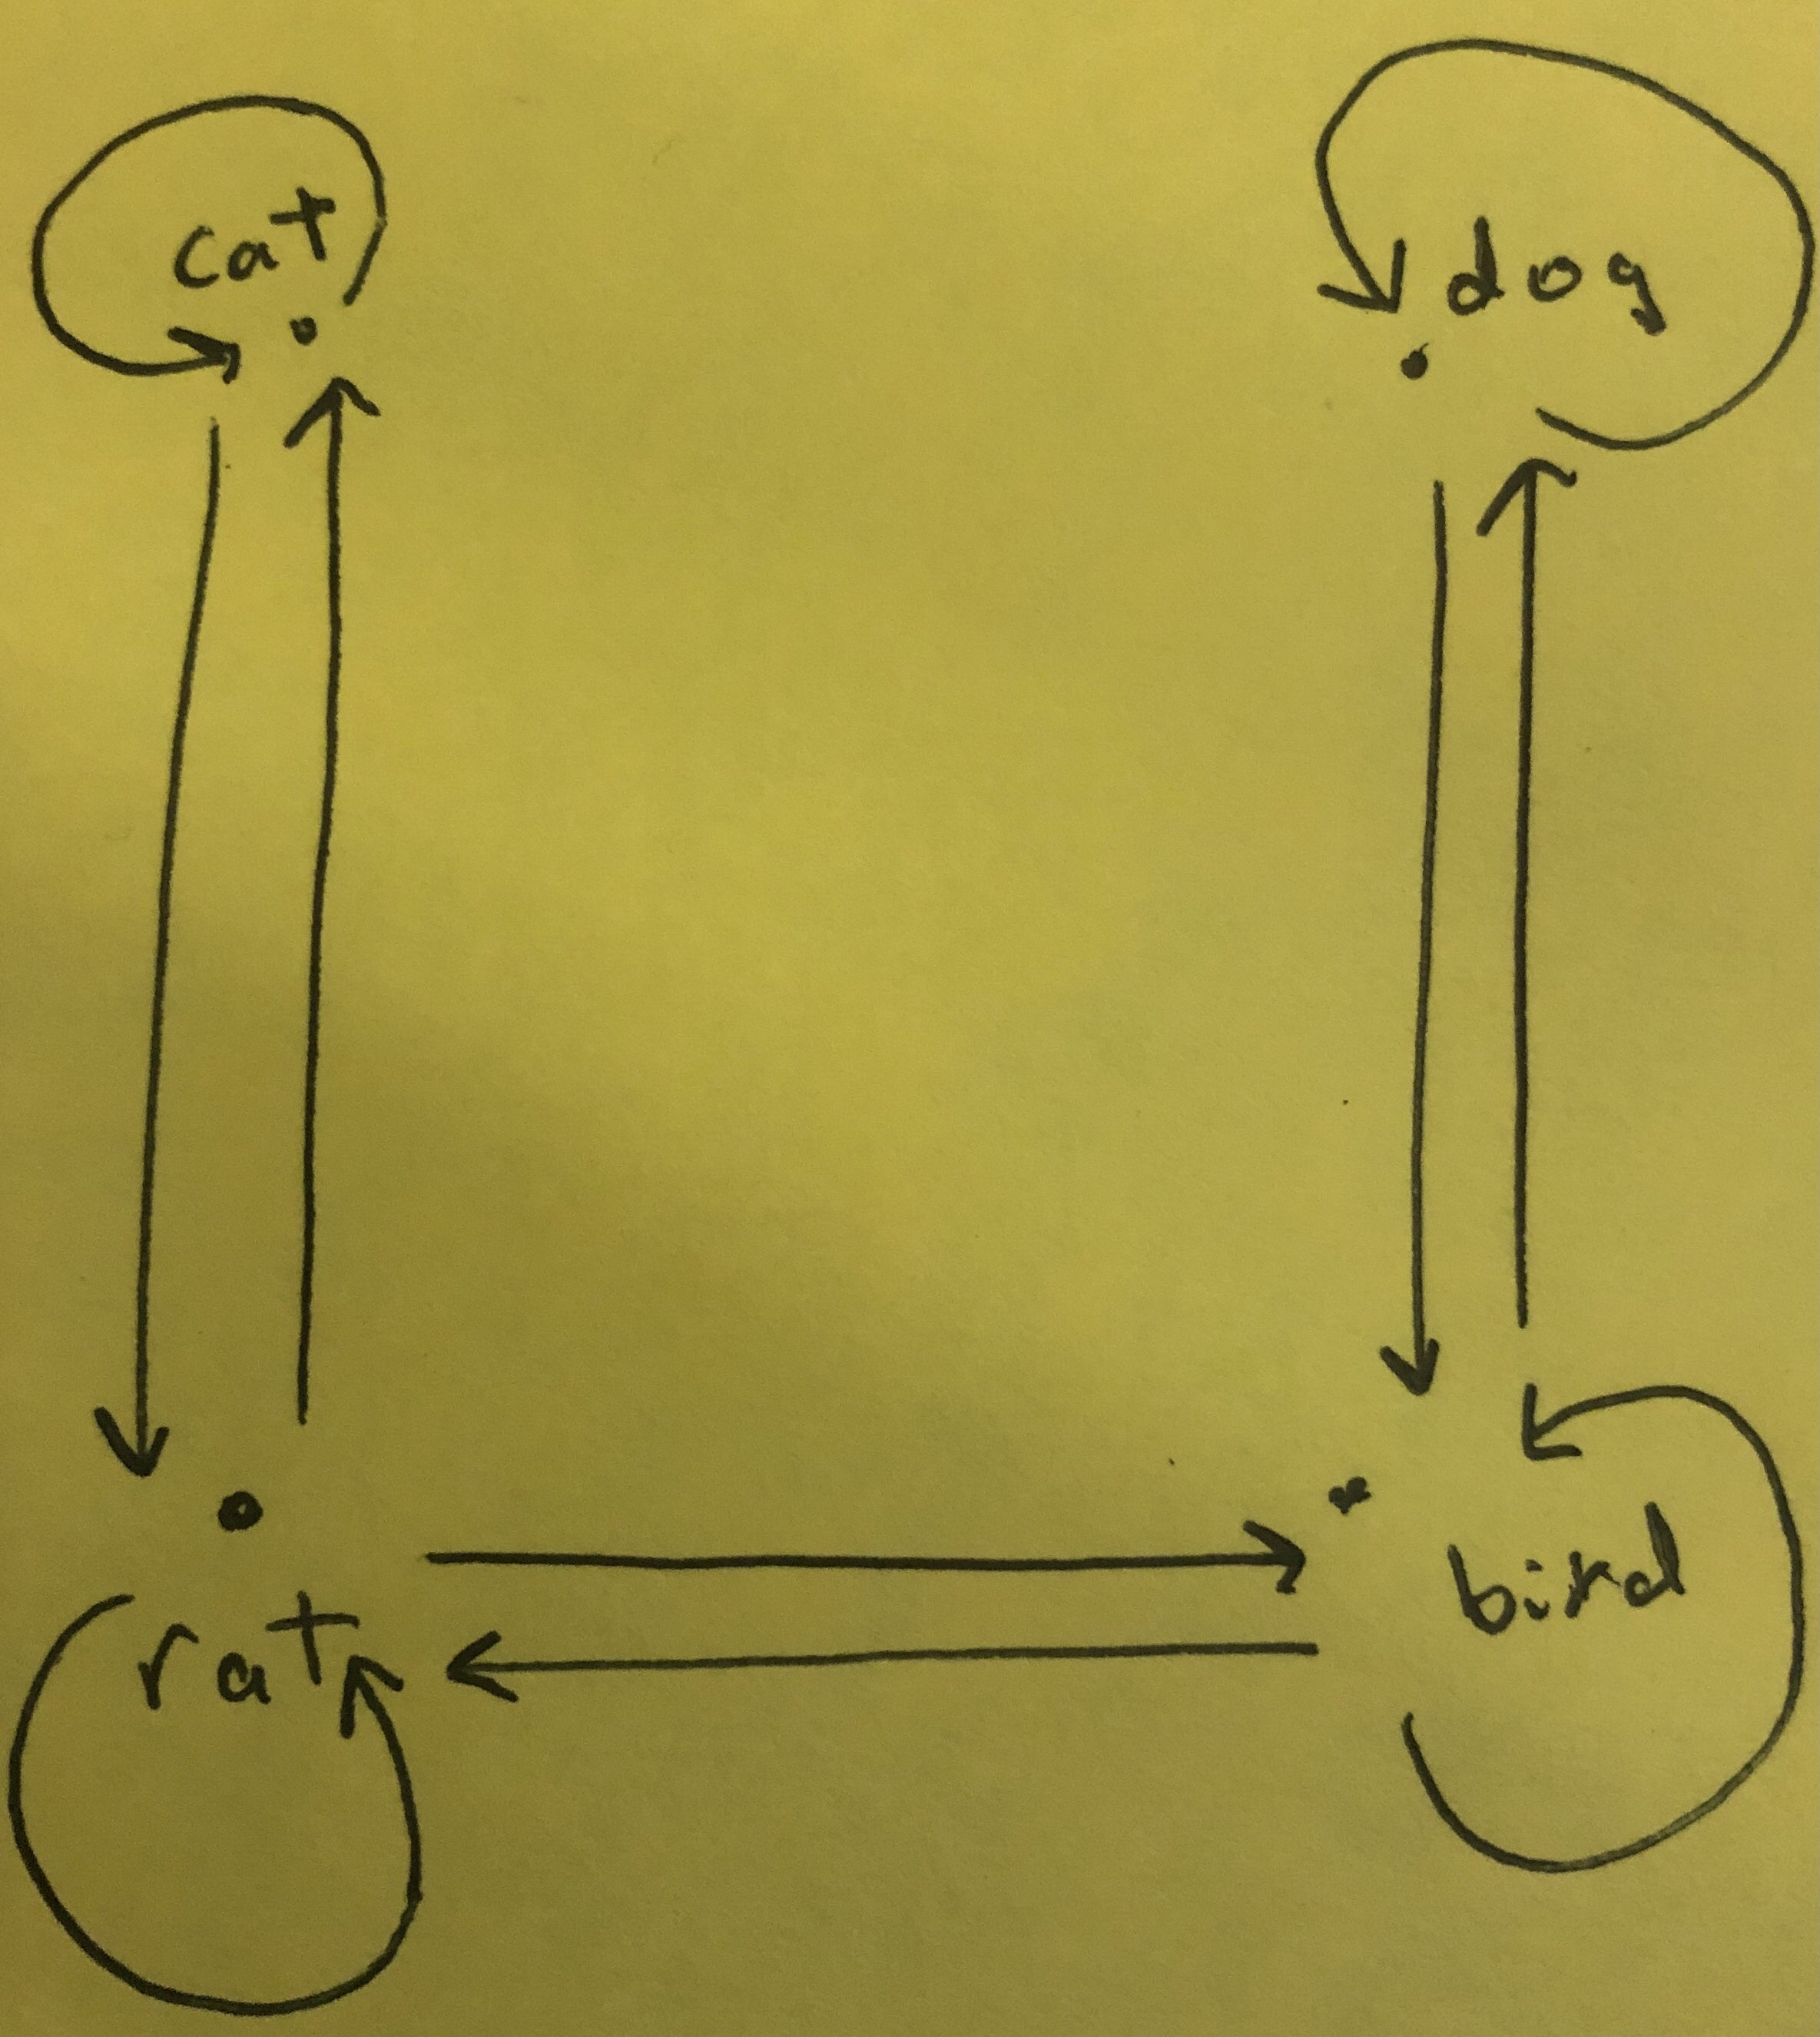 cat
dog
rat
bird